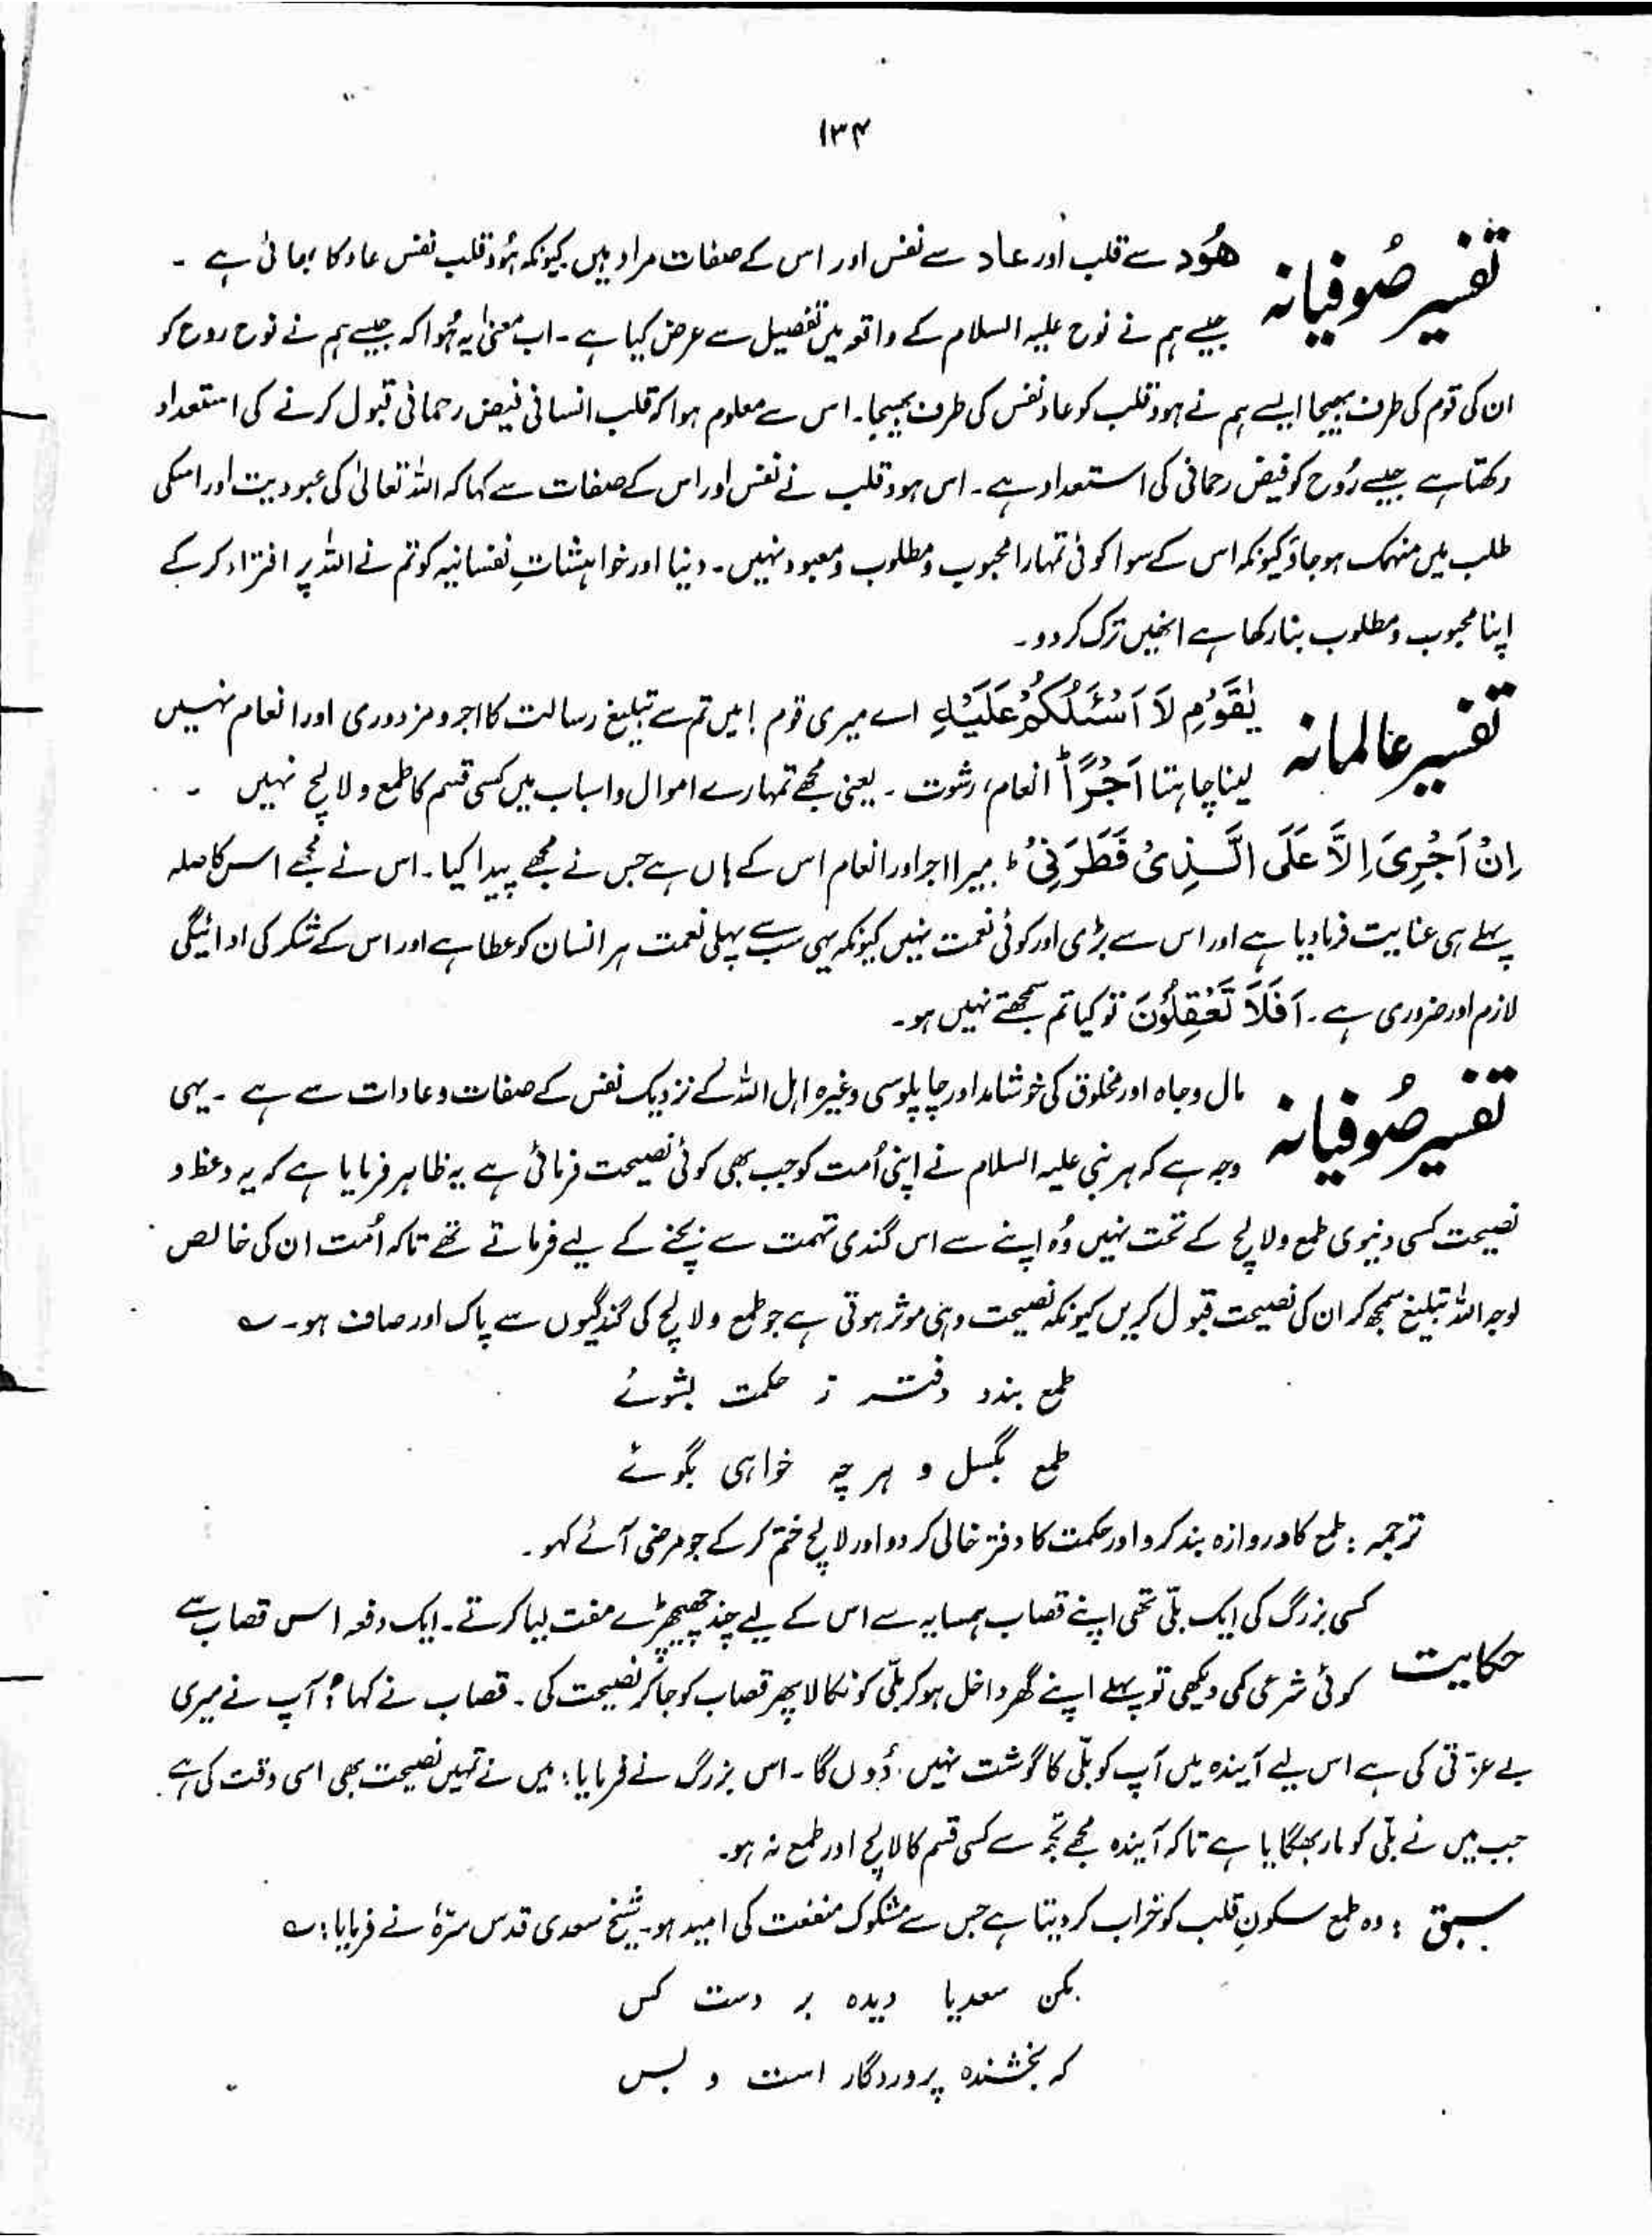 ۱۳۴
تفسیر صُوفیانہ
هُوَد سے قلب اور عاد سے نفس اور اس کے صفات مراد ہیں کیونکہ ہُود قلب نفس عاد کا بھائی ہے ۔
جیسے ہم نے نوح علیہ السلام کے واقعہ میں تفصیل سے عرض کیا ہے ۔ اب معنیٰ یہ ہُوا کہ جیسے ہم نے نوح روح کو
ان کی قوم کی طرف بھیجا ایسے ہم نے ہود قلب کو عاد نفس کی طرف بھیجا ۔ اس سے معلوم ہوا کہ قلب انسانی فیض رحمانی قبول کرنے کی استعداد
رکھتا ہے جیسے رُوح کو فیض رحمانی کی استعداد ہے ۔ اس ہود قلب نے نفس اور اس کے صفات سے کہا کہ اللہ تعالیٰ کی عبودیت اور اسکی
طلب میں منہمک ہو جاؤ کیونکہ اس کے سوا کوئی تمہارا محبوب و مطلوب و معبود نہیں ۔ دنیا اور خواہشاتِ نفسانیہ کو تم نے اللہ پر افتراء کر کے
اپنا محبوب و مطلوب بنا رکھا ہے انہیں ترک کر دو ۔
تفسیر عالمانہ
يٰقَوْمِ لَآ اَسْئَلُكُمْ عَلَيْهِ اے میری قوم ! میں تم سے تبلیغ رسالت کا اجر و مزدوری اور انعام نہیں
لینا چاہتا اَجْرًا ؕ انعام ، رشوت ۔ یعنی مجھے تمہارے اموال و اسباب میں کسی قسم کا طمع و لالچ نہیں ۔
اِنْ اَجْرِىَ اِلَّا عَلَى الَّذِىْ فَطَرَنِىْ ؕ میرا اجر اور انعام اس کے ہاں ہے جس نے مجھے پیدا کیا ۔ اس نے مجھے اس کا صلہ
پہلے ہی عنایت فرما دیا ہے اور اس سے بڑی اور کوئی نعمت نہیں کیونکہ یہی سب سے پہلی نعمت ہر انسان کو عطا ہے اور اس کے شکر کی ادائیگی
لازم اور ضروری ہے ۔ اَفَلَا تَعْقِلُوْنَ تو کیا تم سمجھتے نہیں ہو ۔
تفسیر صُوفیانہ
مال و جاہ اور مخلوق کی خوشامد اور چاپلوسی وغیرہ اہل اللہ کے نزدیک نفس کے صفات و عادات سے ہے ۔ یہی
وجہ ہے کہ ہر نبی علیہ السلام نے اپنی اُمت کو جب بھی کوئی نصیحت فرمائی ہے یہ ظاہر فرمایا ہے کہ یہ وعظ و
نصیحت کسی دنیوی طمع و لالچ کے تحت نہیں وُہ اپنے سے اس گندی تہمت سے بچنے کے لیے فرماتے تھے تاکہ اُمت ان کی خالص
لوجہ اللہ تبلیغ سمجھ کر ان کی نصیحت قبول کریں کیونکہ نصیحت وہی موثر ہوتی ہے جو طمع و لالچ کی گندگیوں سے پاک اور صاف ہو ۔ ؎
طمع بندد دفتر ز حکمت بشوئے
طمع بگسل و ہر چہ خواہی بگوئے
ترجمہ : طمع کا دروازہ بند کرو اور حکمت کا دفتر خالی کر دو اور لالچ ختم کر کے جو مرضی آئے کہو ۔
حکایت
کسی بزرگ کی ایک بلّی تھی اپنے قصاب ہمسایہ سے اس کے لیے چند چھیچھڑے مفت لیا کرتے ۔ ایک دفعہ اس قصاب سے
کوئی شرعی کمی دیکھی تو پہلے اپنے گھر داخل ہو کر بلّی کو نکالا پھر قصاب کو جا کر نصیحت کی ۔ قصاب نے کہا : آپ نے میری
بے عزّتی کی ہے اس لیے آیندہ میں آپ کو بلّی کا گوشت نہیں دُوں گا ۔ اس بزرگ نے فرمایا : میں نے تمہیں نصیحت بھی اسی وقت کی ہے
جب میں نے بلّی کو مار بھگایا ہے تاکہ آیندہ مجھے تجھ سے کسی قسم کا لالچ اور طمع نہ ہو ۔
سبق : وہ طمع سکونِ قلب کو خراب کر دیتا ہے جس سے مشکوک منفعت کی امید ہو ۔ شیخ سعدی قدس سرّہٗ نے فرمایا : ؎
مکن سعدیا دیدہ بر دست کس
کہ بخشندہ پروردگار است و بس